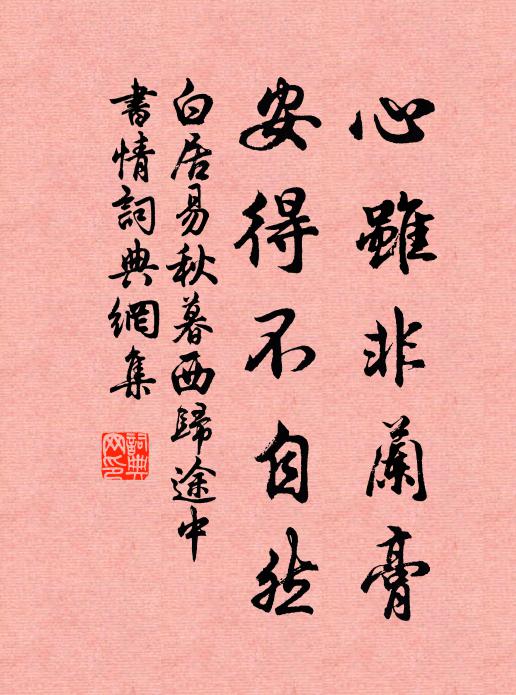 心雖非蘭膏
安得不自然
白居易秋暮西歸途中
書情詞典網集
詞典网印